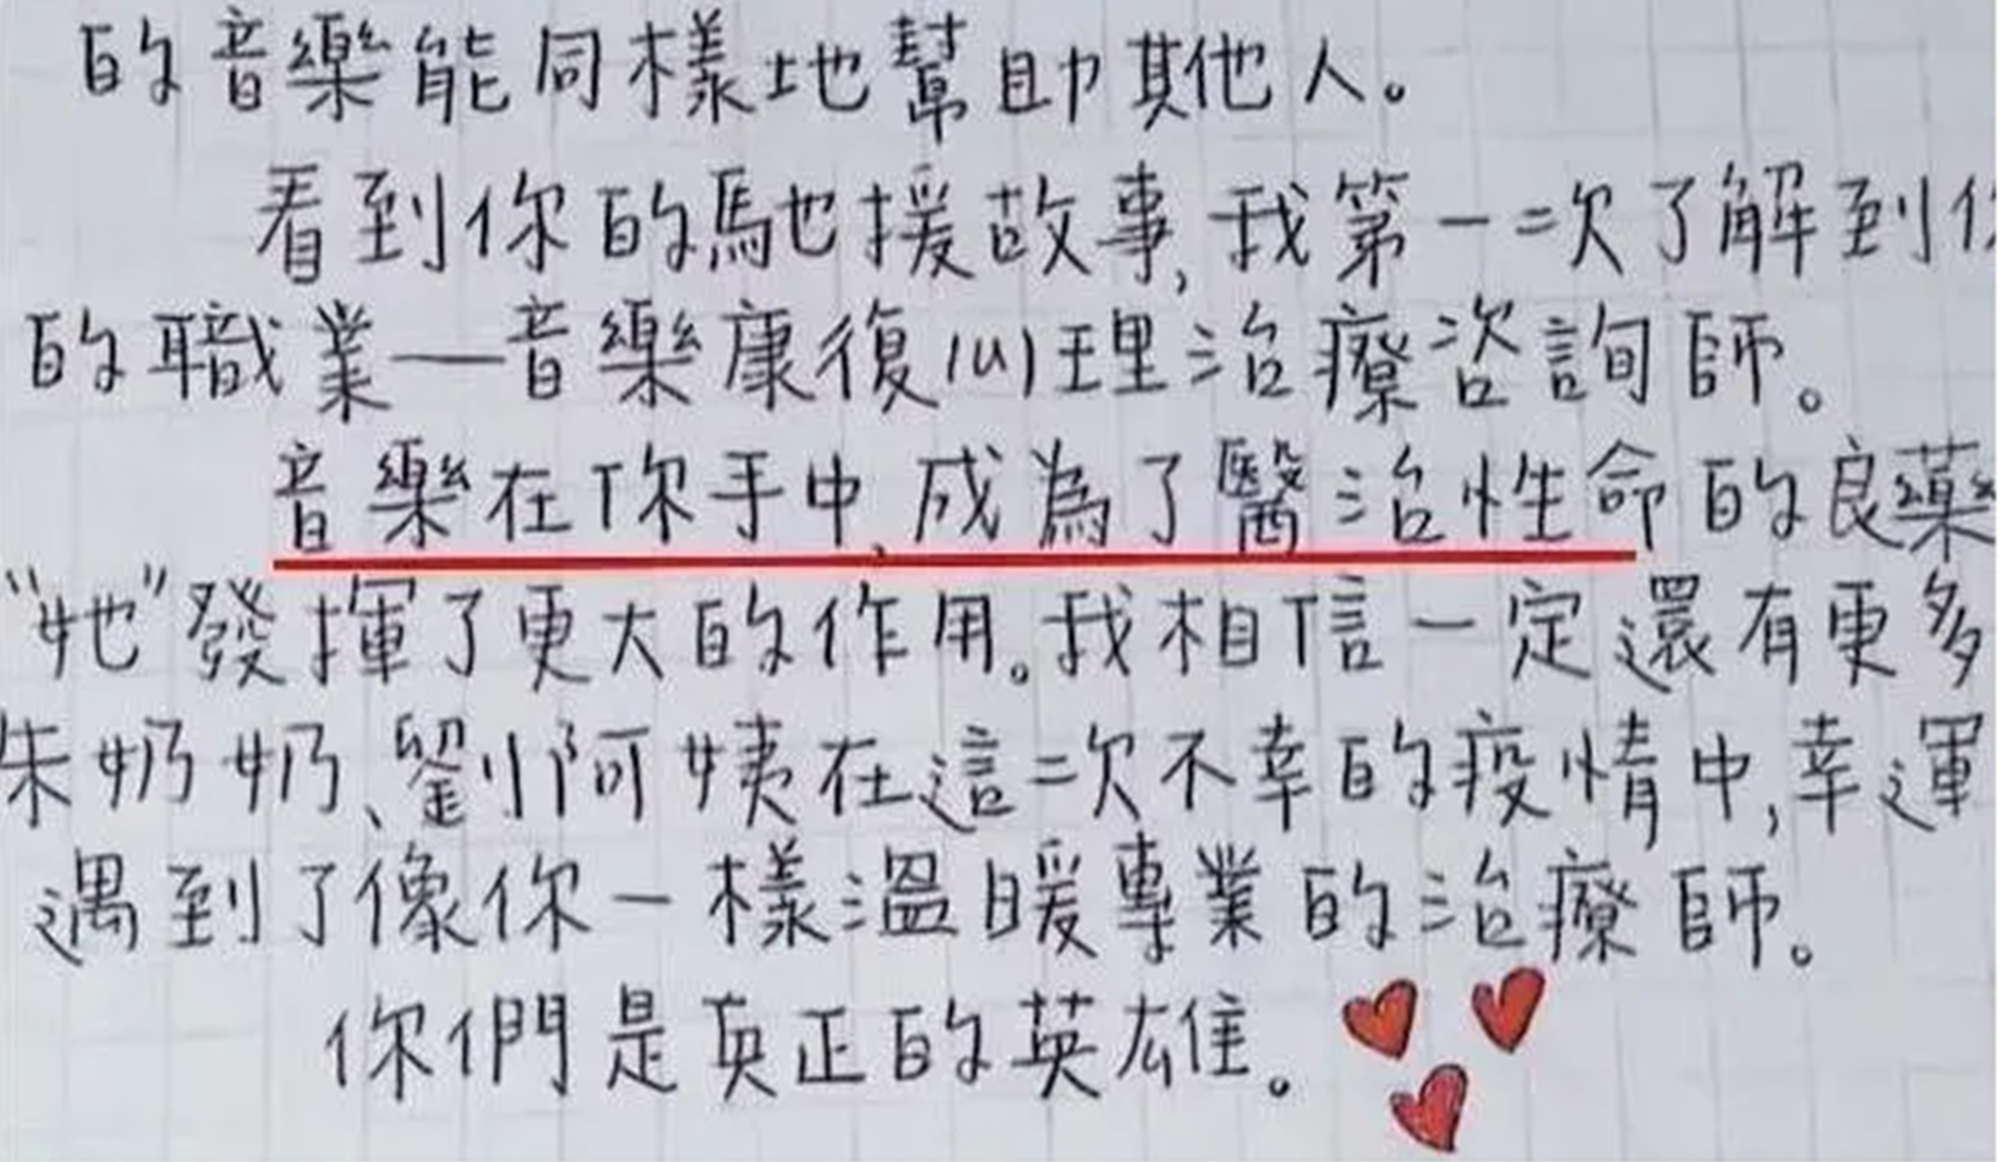 的音樂能同樣地幫助其他人。
看到你的馳援故事,我第一次了解到
的職業——音樂康復心理治療咨詢師。
音樂在你手中,成為了醫治性命的良藥
“牠”發揮了更大的作用。我相信一定還有更多
朱奶奶、劉阿姨在這次不幸的疫情中,幸運
遇到了像你一樣溫暖專業的治療師。
你們是真正的英雄。